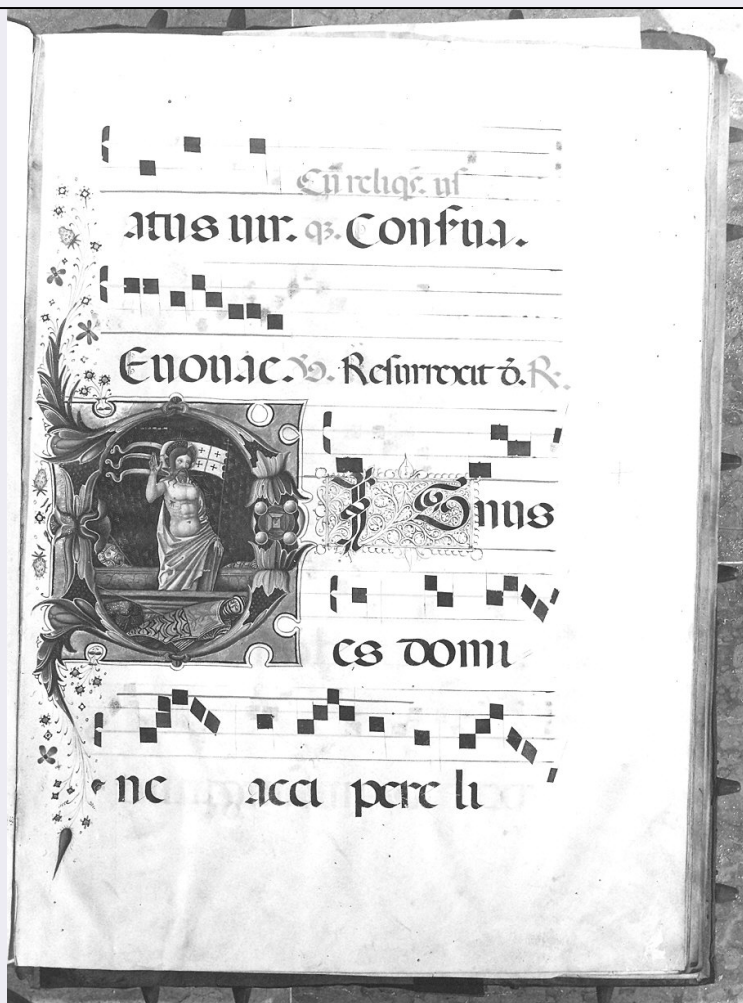 Cũ reliqs. uſ
atus uir. ps. Conſua.
Euouae. V. Resurrexit d. R.
D I Gnus
es domi
ne acci pere li